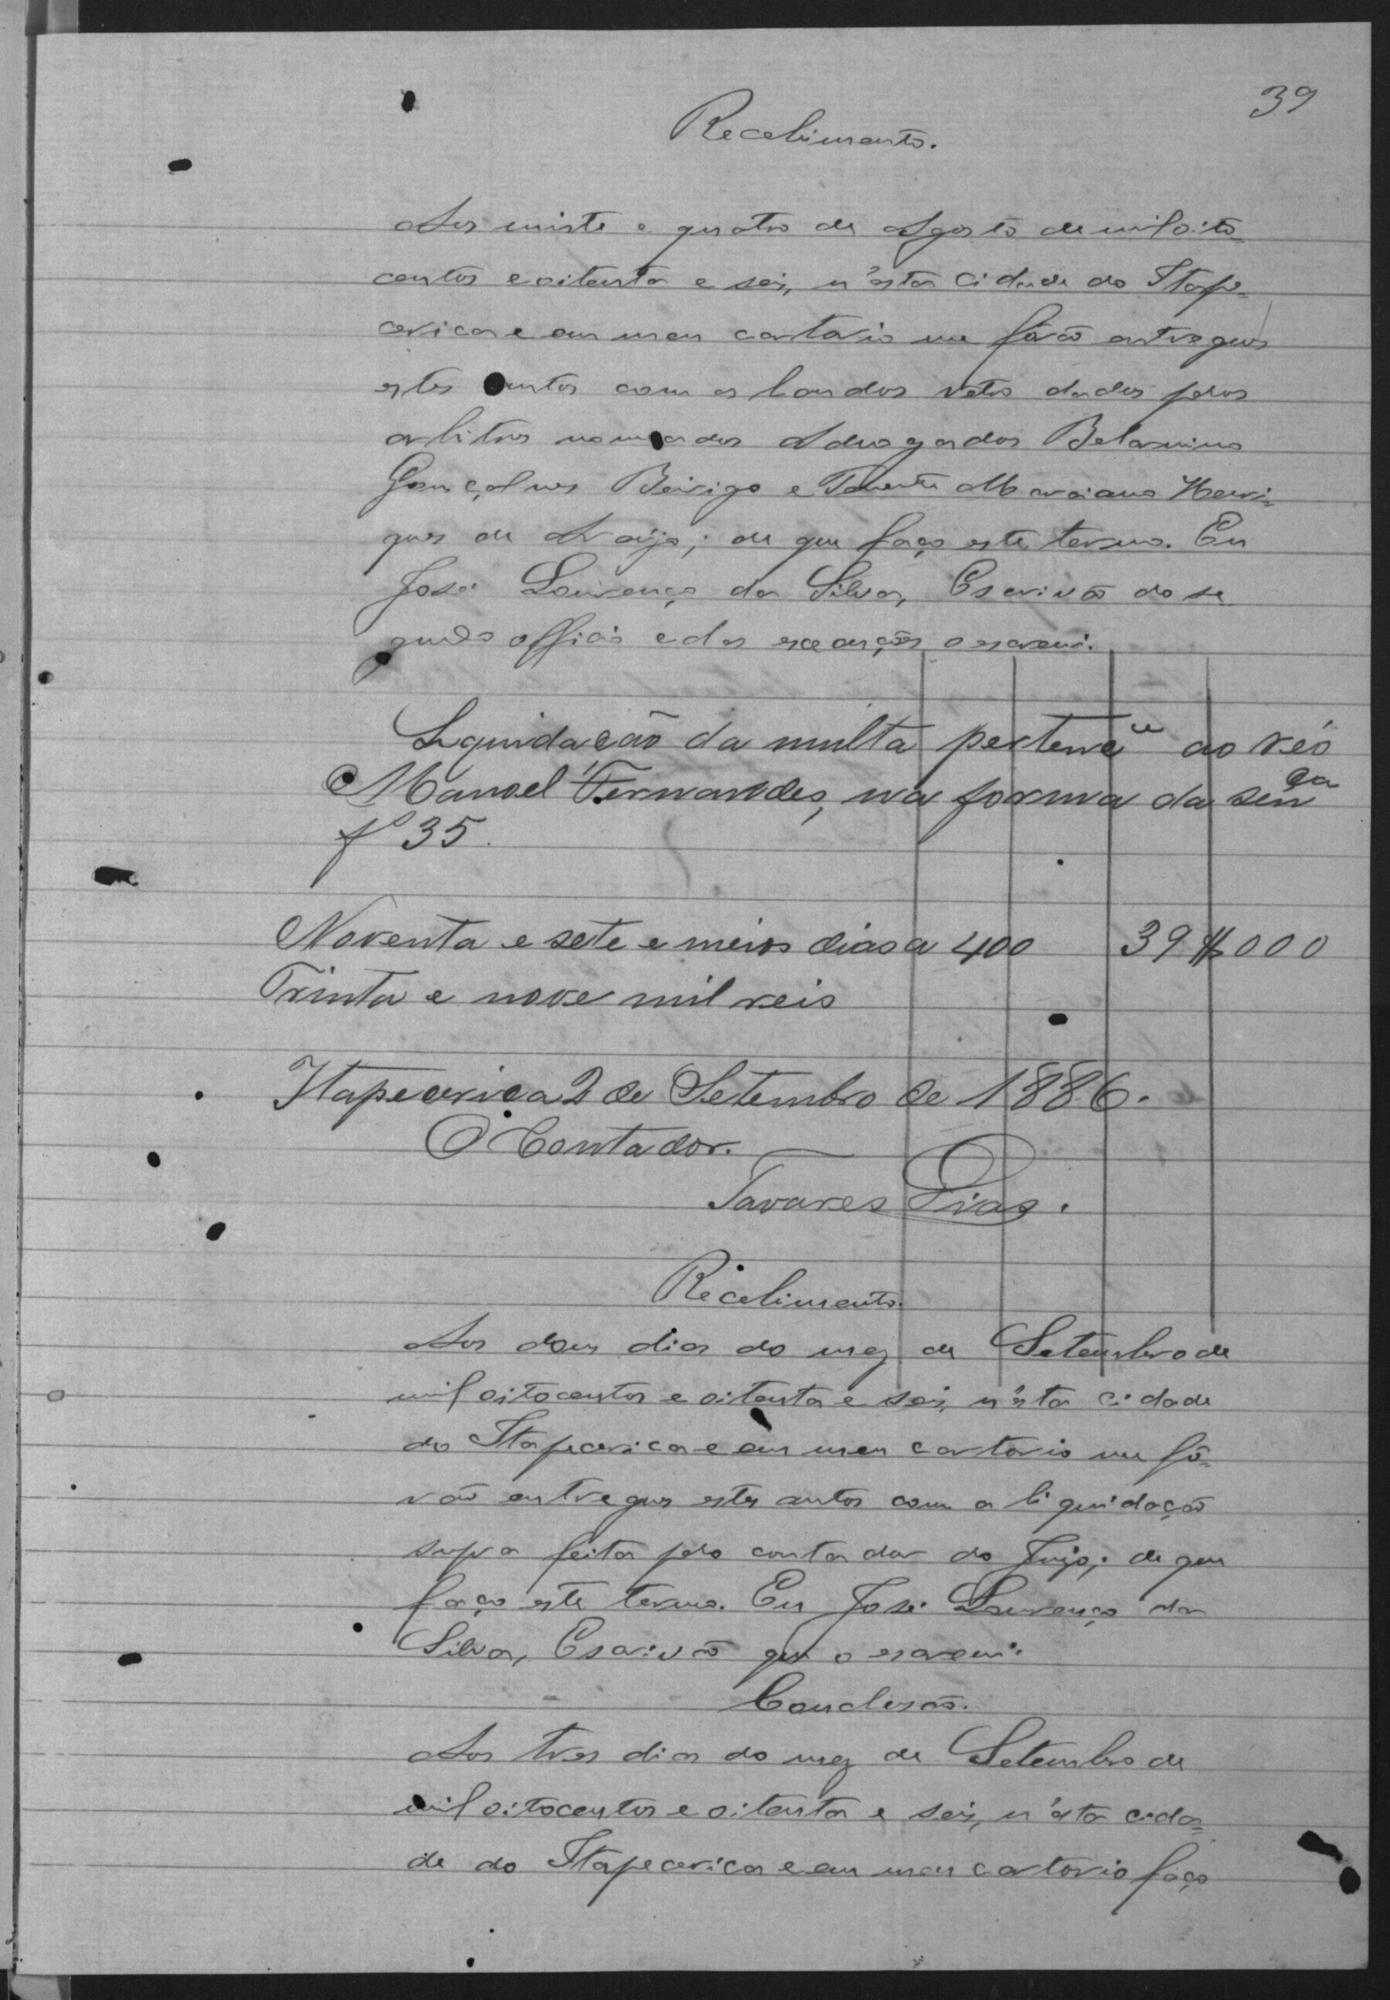 39
Recebimento.
Aos vinte e quatro de Agosto de mil oito
centos e oitenta e seis, n'esta cidade do Itape-
cerica e em meu cartorio me fôrão entregues
estes autos com os laudos retro dados pelos
arbitros nomeados Advogados Belarmino
Gonçalves Beirigo e Tenente Marciano Henri-
ques de Araújo; de que faço este termo. Eu
José Lourenço da Silva, Escrivão do se-
gundo officio e das execuções o escrevi.
Liquidação da multa pertence ao réo
Manoel Fernandes, na forma da sença
fº 35.
Noventa e sete e meios dias a 400 39$000
Trinta e nove mil reis
Itapecerica 2 de Setembro de 1886.
O Contador.
Tavares Dias.
Recebimento.
Aos dous dias do mez de Setembro de
mil oitocentos e oitenta e seis, n'esta cidade
do Itapecerica e em meu cartorio me fô-
rão entregues estes autos com a liquidação
supra feita pelo contador do Juizo; de que
faço este termo. Eu José Lourenço da
Silva, Escrivão que o escrevi.
Conclusão.
Aos tres dias do mez de Setembro de
mil oitocentos e oitenta e seis, n'esta cida-
de do Itapecerica e em meu cartorio faço